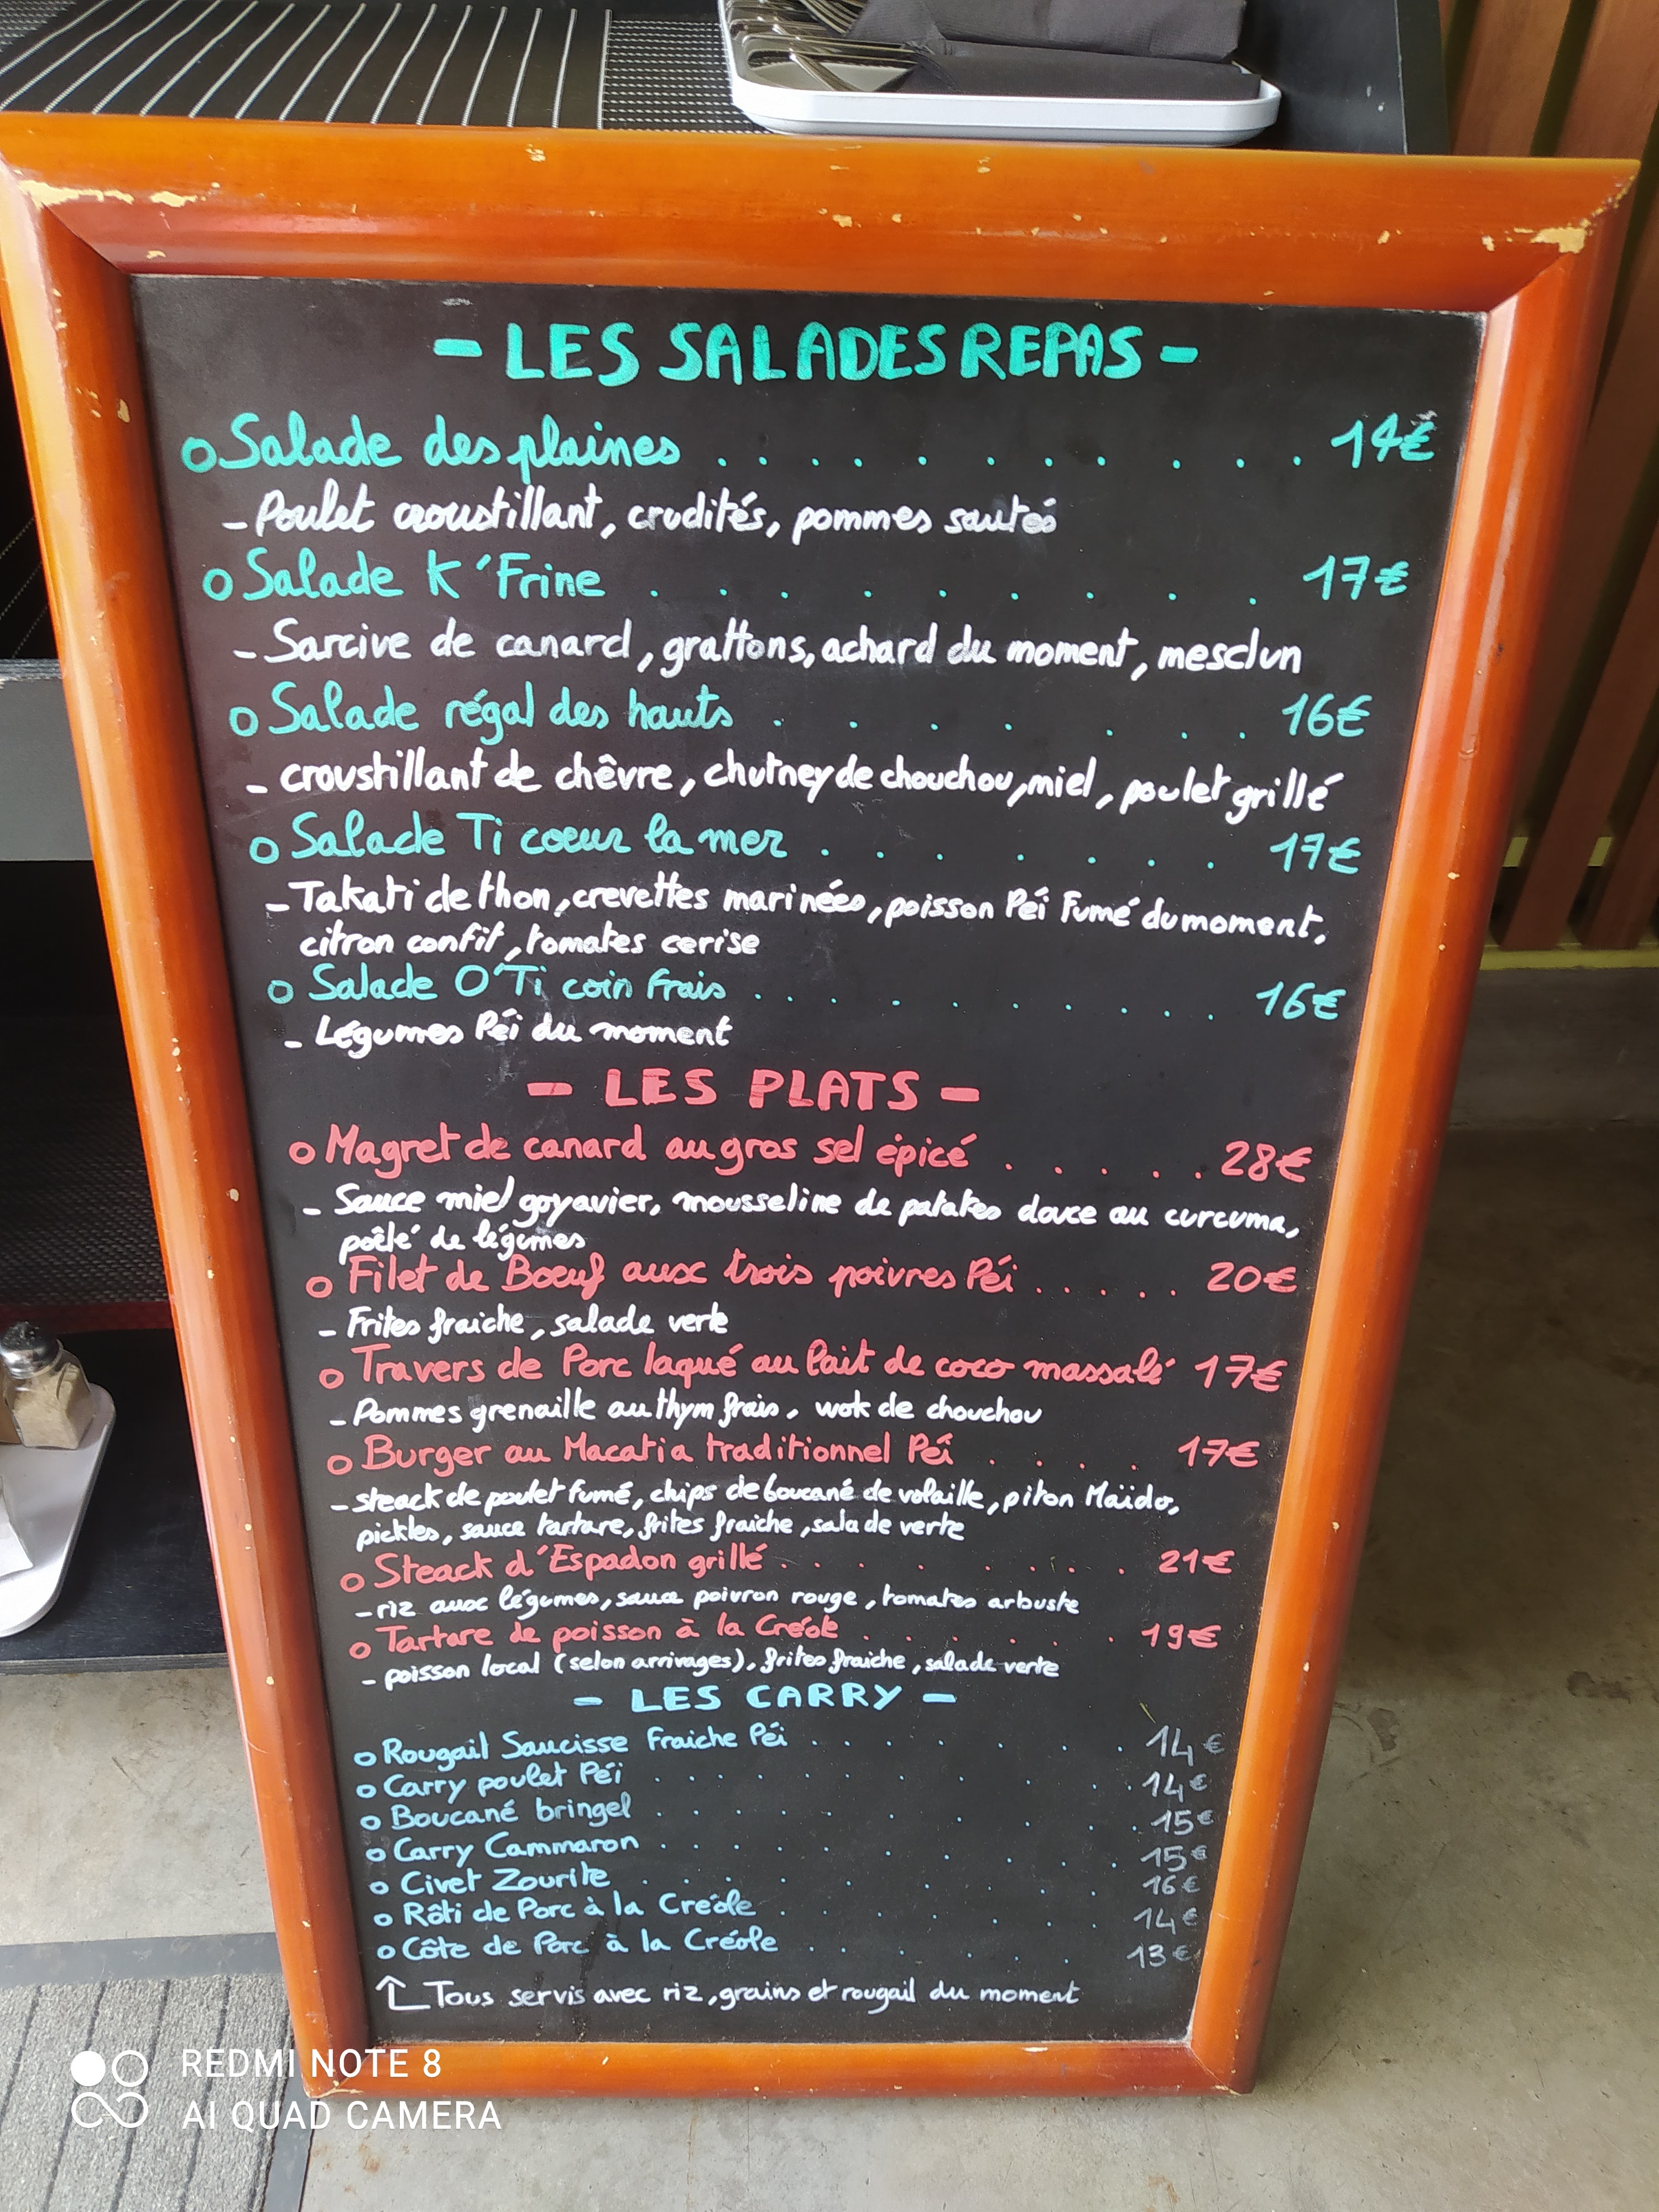 - LES SALADES REPAS -
o Salade des plaines . . . . . . . . . . . 14€
- Poulet croustillant, crudités, pommes sautés
o Salade K'Frine . . . . . . . . . 17€
- Sarcive de canard, grattons, achard du moment, mesclun
o Salade régal des hauts . . . . . . . 16€
- croustillant de chêvre, chutney de chouchou, miel, poulet grillé
o Salade Ti coeur la mer . . . . . . . 17€
- Takati de thon, crevettes marinées, poisson Péï Fumé du moment,
citron confit, tomates cerise
o Salade O'Ti coin frais . . . . . . . . . . 16€
- Légumes Péi du moment
- LES PLATS -
o Magret de canard au gros sel épicé . . . . . 28€
- Sauce miel goyavier, mousseline de patates douce au curcuma,
poêlé de légumes
o Filet de Boeuf aux trois poivres Péi . . . . . 20€
- Frites fraiche, salade verte
o Travers de Porc laqué au lait de coco massalé 17€
- Pommes grenaille au thym frais, wok de chouchou
o Burger au Macatia traditionnel Péï . . . . 17€
- steack de poulet fumé, chips de boucané de volaille, piton Maïdo,
pickles, sauce tartare, frites fraiche, salade verte
o Steack d'Espadon grillé . . . . . . . . 21€
- riz aux légumes, sauce poivron rouge, tomates arbuste
o Tartare de poisson à la Créole . . . . . . 19€
- poisson local (selon arrivages), frites fraiche, salade verte
- LES CARRY -
o Rougail Saucisse Fraiche Péi . . . . . . . 14€
o Carry poulet Péï . . . . . . . . . . 14€
o Boucané bringel . . . . . . . . . . 15€
o Carry Cammaron . . . . . . . . . . 15€
o Civet Zourite . . . . . . . . . 16€
o Rôti de Porc à la Creôle . . . . . . . 14€
o Côte de Porc à la Créole . . . . . . 13€
Tous servis avec riz, grains et rougail du moment
REDMI NOTE 8
AI QUAD CAMERA